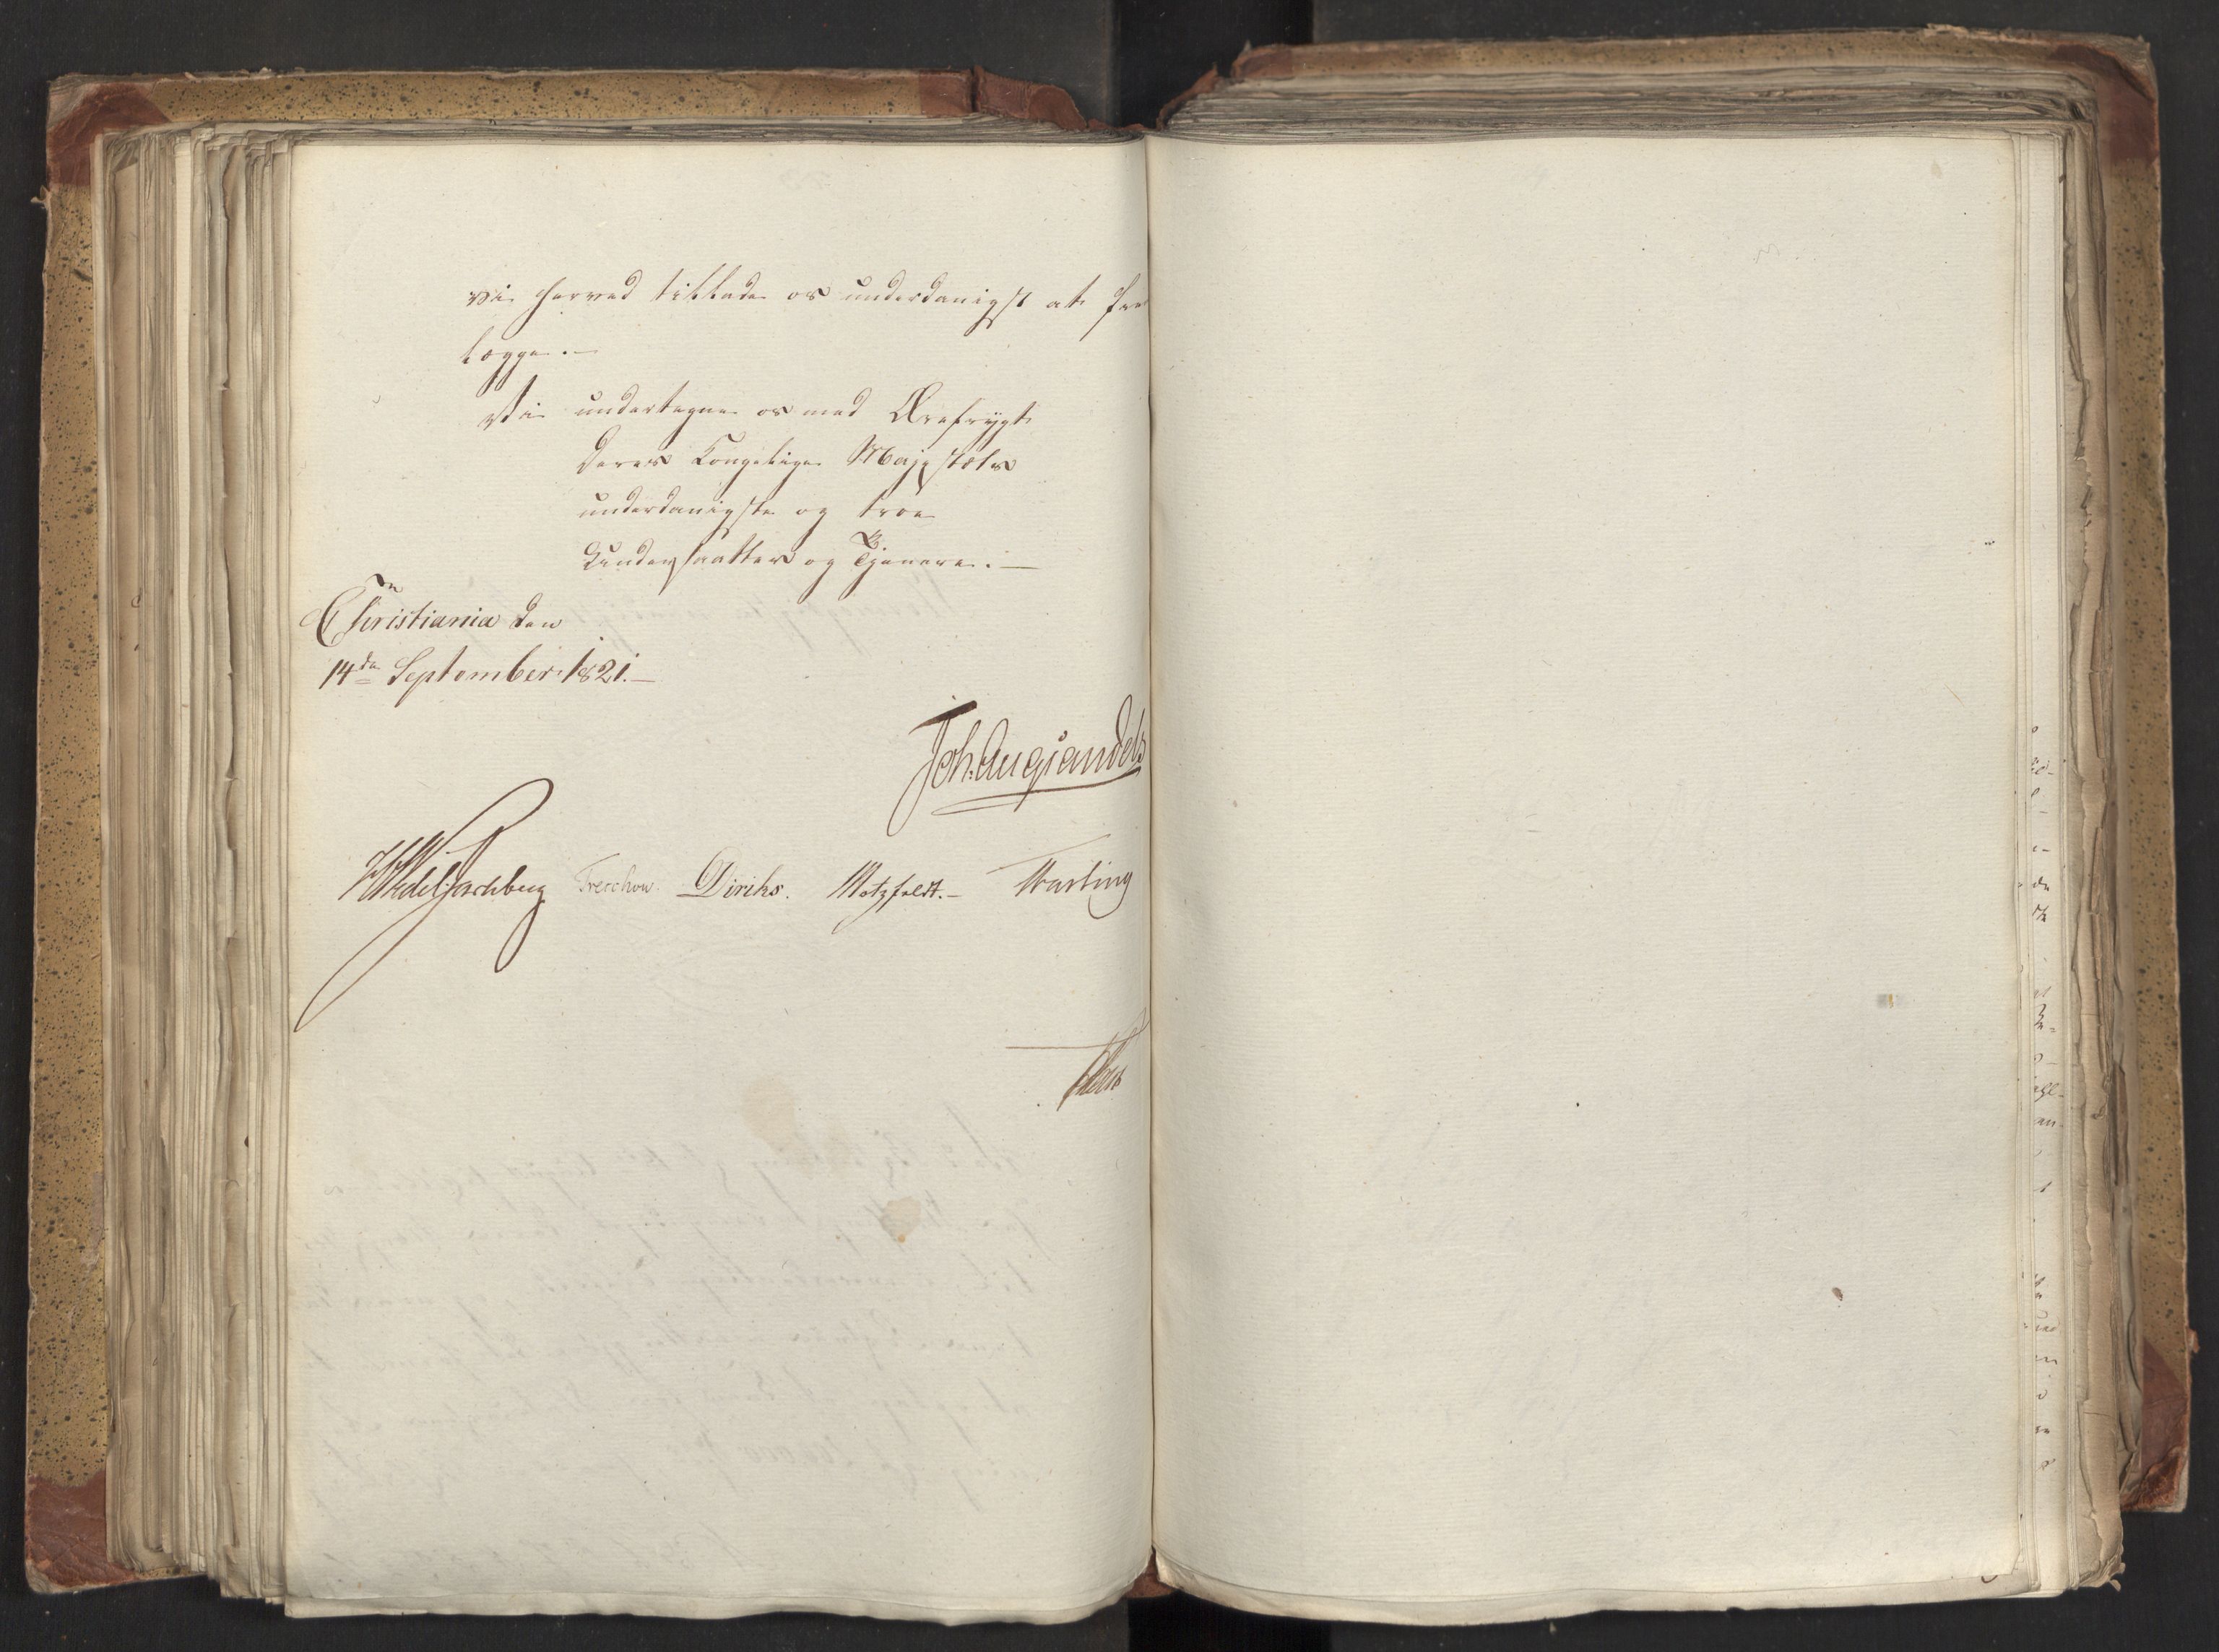 vi herved tillade os underdanigst at fre
lægge.—
Vi undertegne os med Ærefrygt
Deres Kongelige Majestæts
underdanigste og troe
Undersaatter og Tjenere.—
Christiania den
14de September 1821.—
Joh: Aug Sandels
HWedel Jarlsberg Treschow. Diriks. Motzfeldt.—